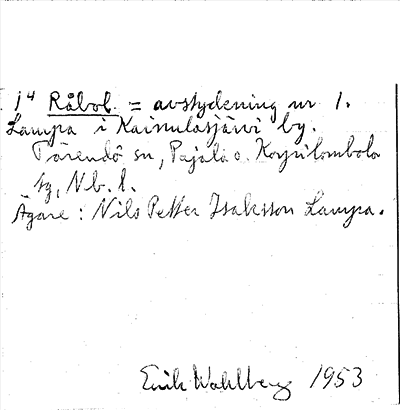 14 Råbol. = avstyckning nr 1.
Lampa i Kainulasjärvi by.
Tärendö sn, Pajala o. Korpilombolo
tg, Nb. l.
Ägare: Nils Petter Isaksson Lampa.
Erik Wahlberg 1953